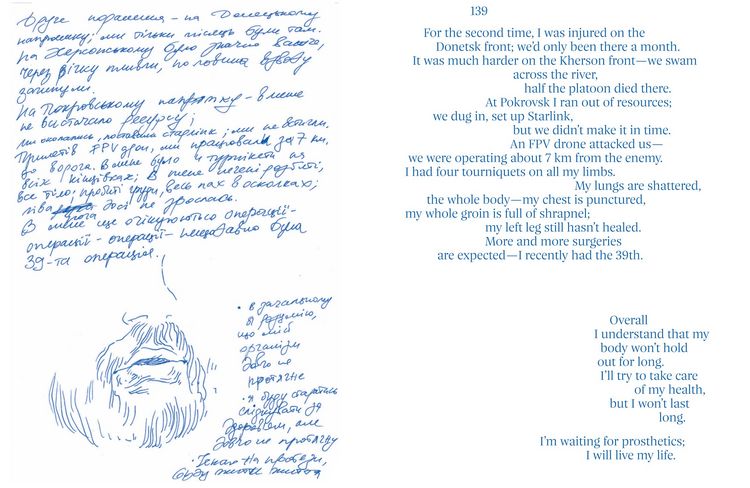 Друге поранення – на Донецькому
напрямку; ми тільки місяць були там.
На Херсонському було значно важче,
через річку пливли, половина взводу
загинули.
На Покровському напрямку – в мене
не вистачило ресурсу;
ми окопались, поставили старлінк; ми не встигли.
Прилетів FPV дрон, ми працювали за 7 км,
до ворога. В мене було 4 турнікети на
всіх кінцівках; В мене легені розбиті,
все тіло; пробиті груди, весь пах в осколках;
ліва нога досі не зрослась.
В мене ще очікуються операції –
операції – операції – нещодавно була
39-та операція.
• в загальному
я розумію,
що мій
організм
довго не
протягне
• я буду старатись
слідкувати за
здоров'ям, але
довго не протягну
• Чекаю на протези,
буду жити життя
139
For the second time, I was injured on the
Donetsk front; we'd only been there a month.
It was much harder on the Kherson front—we swam
across the river,
half the platoon died there.
At Pokrovsk I ran out of resources;
we dug in, set up Starlink,
but we didn't make it in time.
An FPV drone attacked us—
we were operating about 7 km from the enemy.
I had four tourniquets on all my limbs.
My lungs are shattered,
the whole body—my chest is punctured,
my whole groin is full of shrapnel;
my left leg still hasn't healed.
More and more surgeries
are expected—I recently had the 39th.
Overall
I understand that my
body won't hold
out for long.
I'll try to take care
of my health,
but I won't last
long.
I'm waiting for prosthetics;
I will live my life.